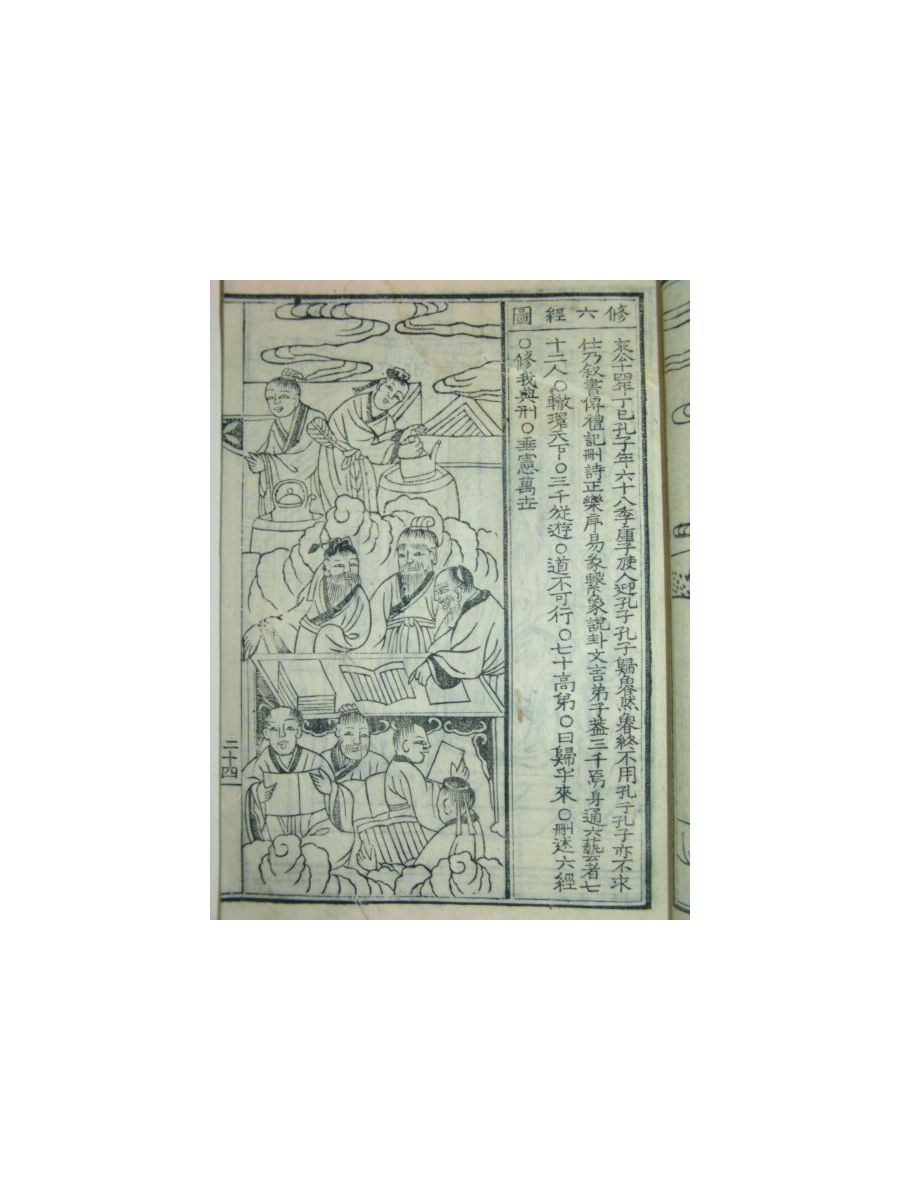 修六經圖
哀公十四年丁巳孔子年六十八季康子使人迎孔子孔子歸魯然魯終不用孔子孔子亦不求
仕乃叙書傳禮記刪詩正樂序易彖繫象說卦文言弟子葢三千焉身通六藝者七
十二人○轍環天下○三千從遊○道不可行○七十高第○曰歸乎來○刪述六經
○修我典刑○垂憲萬世
二十四